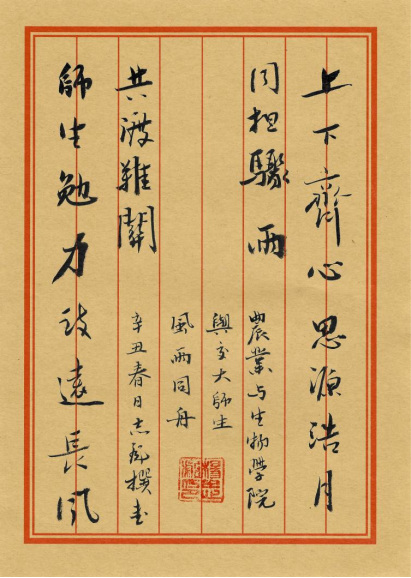 上下齊心思源浩月
同担驟雨
農業与生物學院
與交大師生
風雨同舟
共渡難關
辛丑春日志彪撰书
師生勉力致遠長風